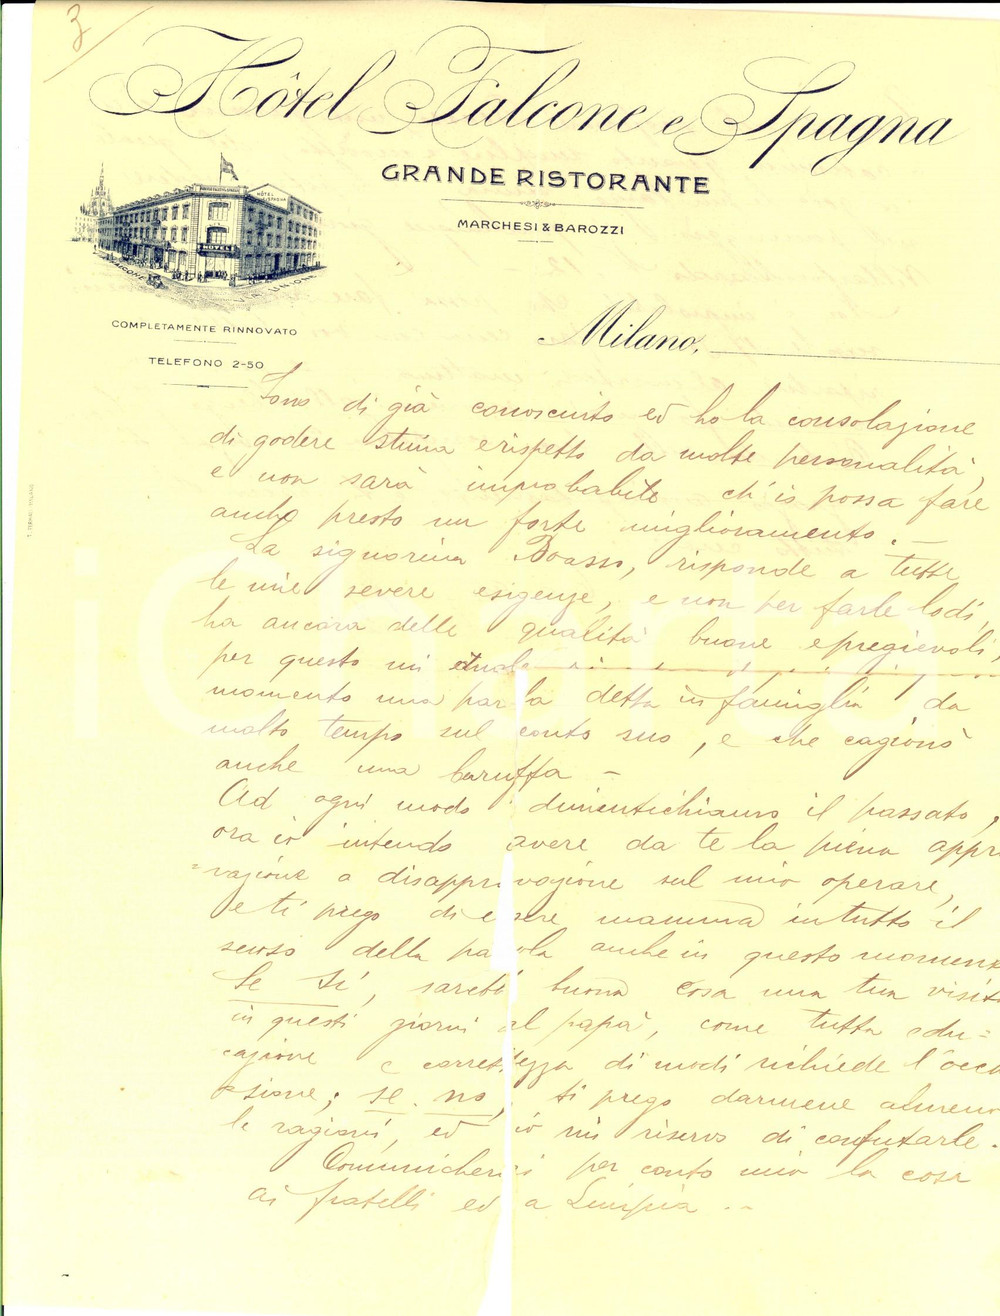 3
Hôtel Falcone e Spagna
GRANDE RISTORANTE
MARCHESI & BAROZZI
HOTEL
FALCONE
VIA UNIONE
COMPLETAMENTE RINNOVATO
TELEFONO 2-50
Milano,
Sono di già conosciuto ed ho la consolazione
di godere stima e rispetto da molte personalità,
e non sarà improbabile ch'io possa fare
anche presto un forte miglioramento. —
La signorina Boasso, risponde a tutte
le mie severe esigenze, e non per farle lodi,
ha ancora delle qualità buone e pregievoli,
per questo mi
momento una parola detta in famiglia da
molto tempo sul conto suo, e che cagionò
anche una baruffa —
Ad ogni modo dimentichiamo il passato,
ora io intendo avere da te la piena appro
=vazione o disapprovazione sul mio operare,
e ti prego di essere mamma in tutto il
senso della parola anche in questo momento
Se Si, sarebbe buona cosa una tua visita
in questi giorni al papà, come tutta edu=
cazione e correttezza di modi richiede l'occa
=sione; se no, ti prego darmene almeno
le ragioni, ed io mi riservo di confutarle.
Comunicherai per conto mio la cosa
ai fratelli ed a
iCharta